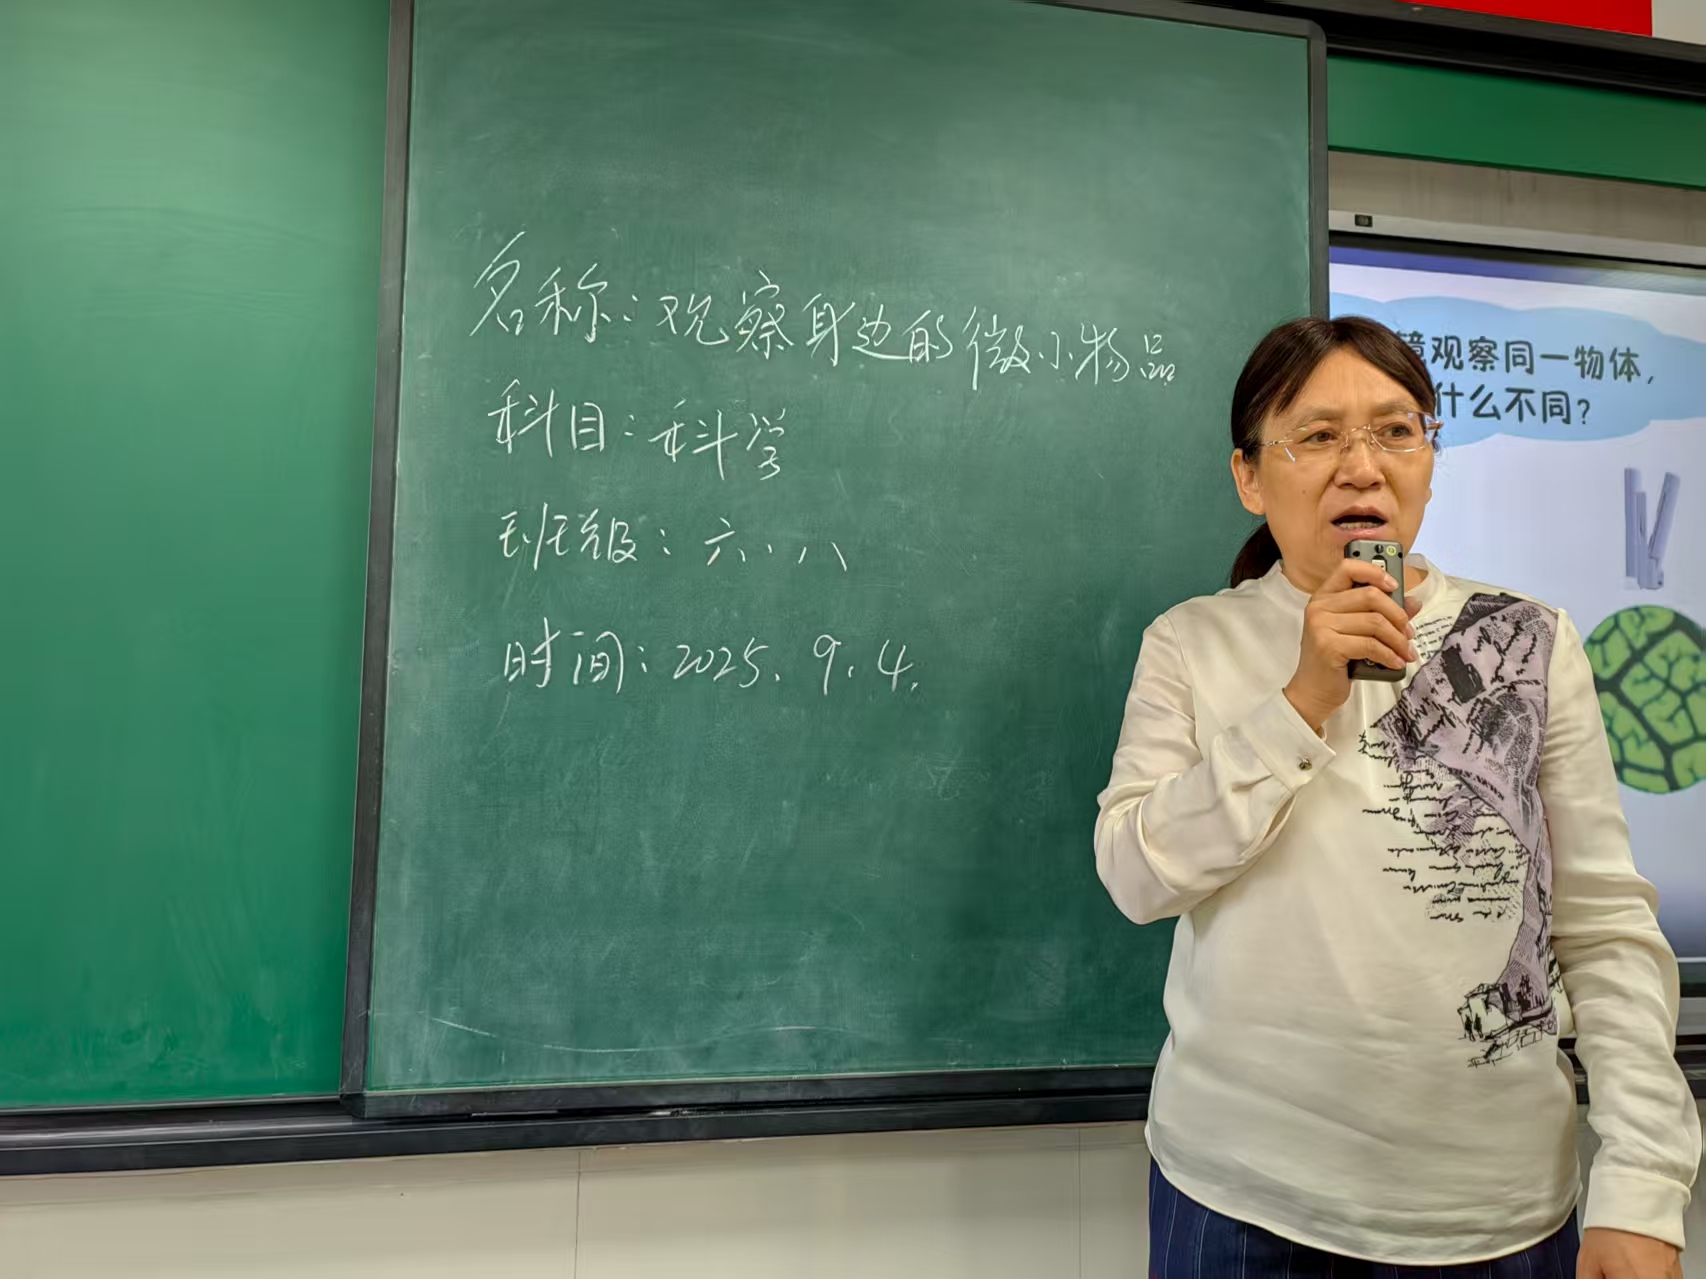 名称：观察身边的微小物品
科目：科学
班级：六、八
时间：2025.9.4.
镜观察同一物体，
什么不同？